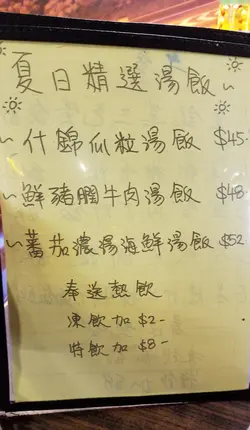 ~夏日精選湯飯~
~什錦瓜粒湯飯 $45-
~鮮豬膶牛肉湯飯 $48
~蕃茄濃湯海鮮湯飯 $52
奉送熱飲
凍飲加 $2-
特飲加 $8-